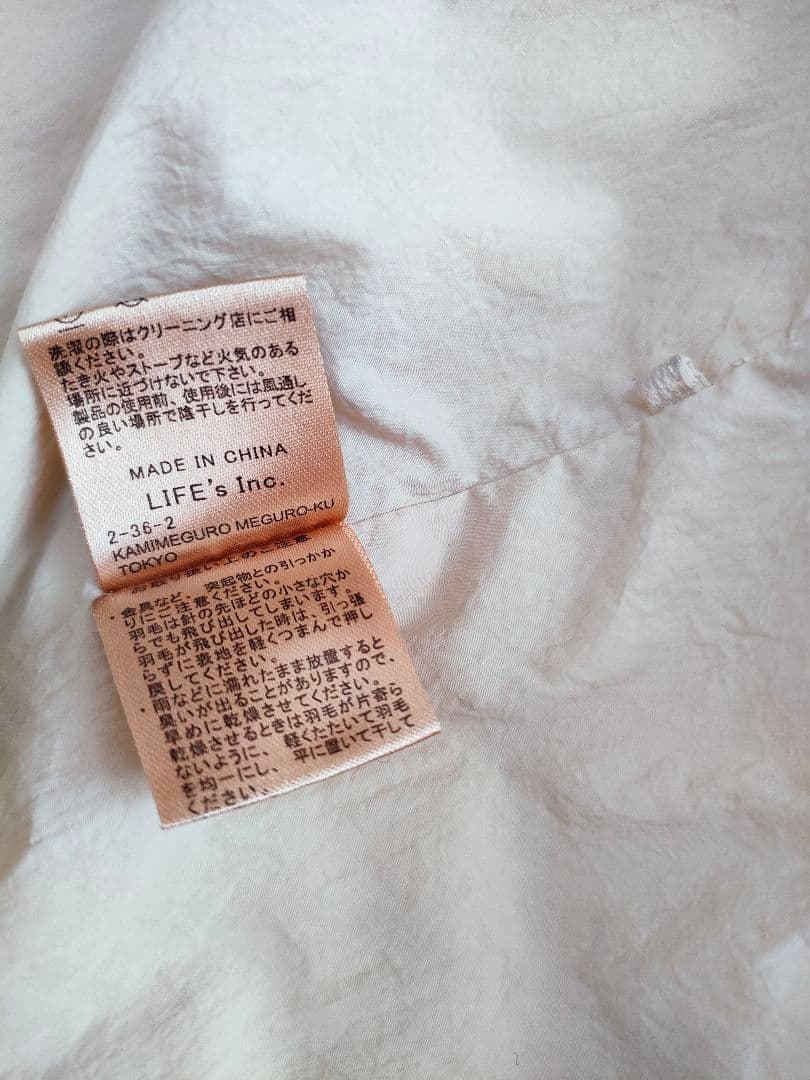 洗濯の際はクリーニング店にご相
談ください。
たき火やストーブなど火気のある
場所に近づけないで下さい。
製品の使用前、使用後には風通し
の良い場所で陰干しを行ってくだ
さい。
MADE IN CHINA
LIFE's Inc.
2-36-2
KAMIMEGURO MEGURO-KU
TOKYO
お取り扱い上のご注意
・金具など、突起物との引っかか
りにご注意ください。
羽毛は針の先ほどの小さな穴か
らでも飛び出してしまいます。
羽毛が飛び出した時は、引っ張
らずに表地を軽くつまんで押し
戻してください。
・雨などに濡れたまま放置すると
臭いが出ることがありますので、
早めに乾燥させてください。
乾燥させるときは羽毛が片寄ら
ないように、軽くたたいて羽毛
を均一にし、平に置いて干して
ください。